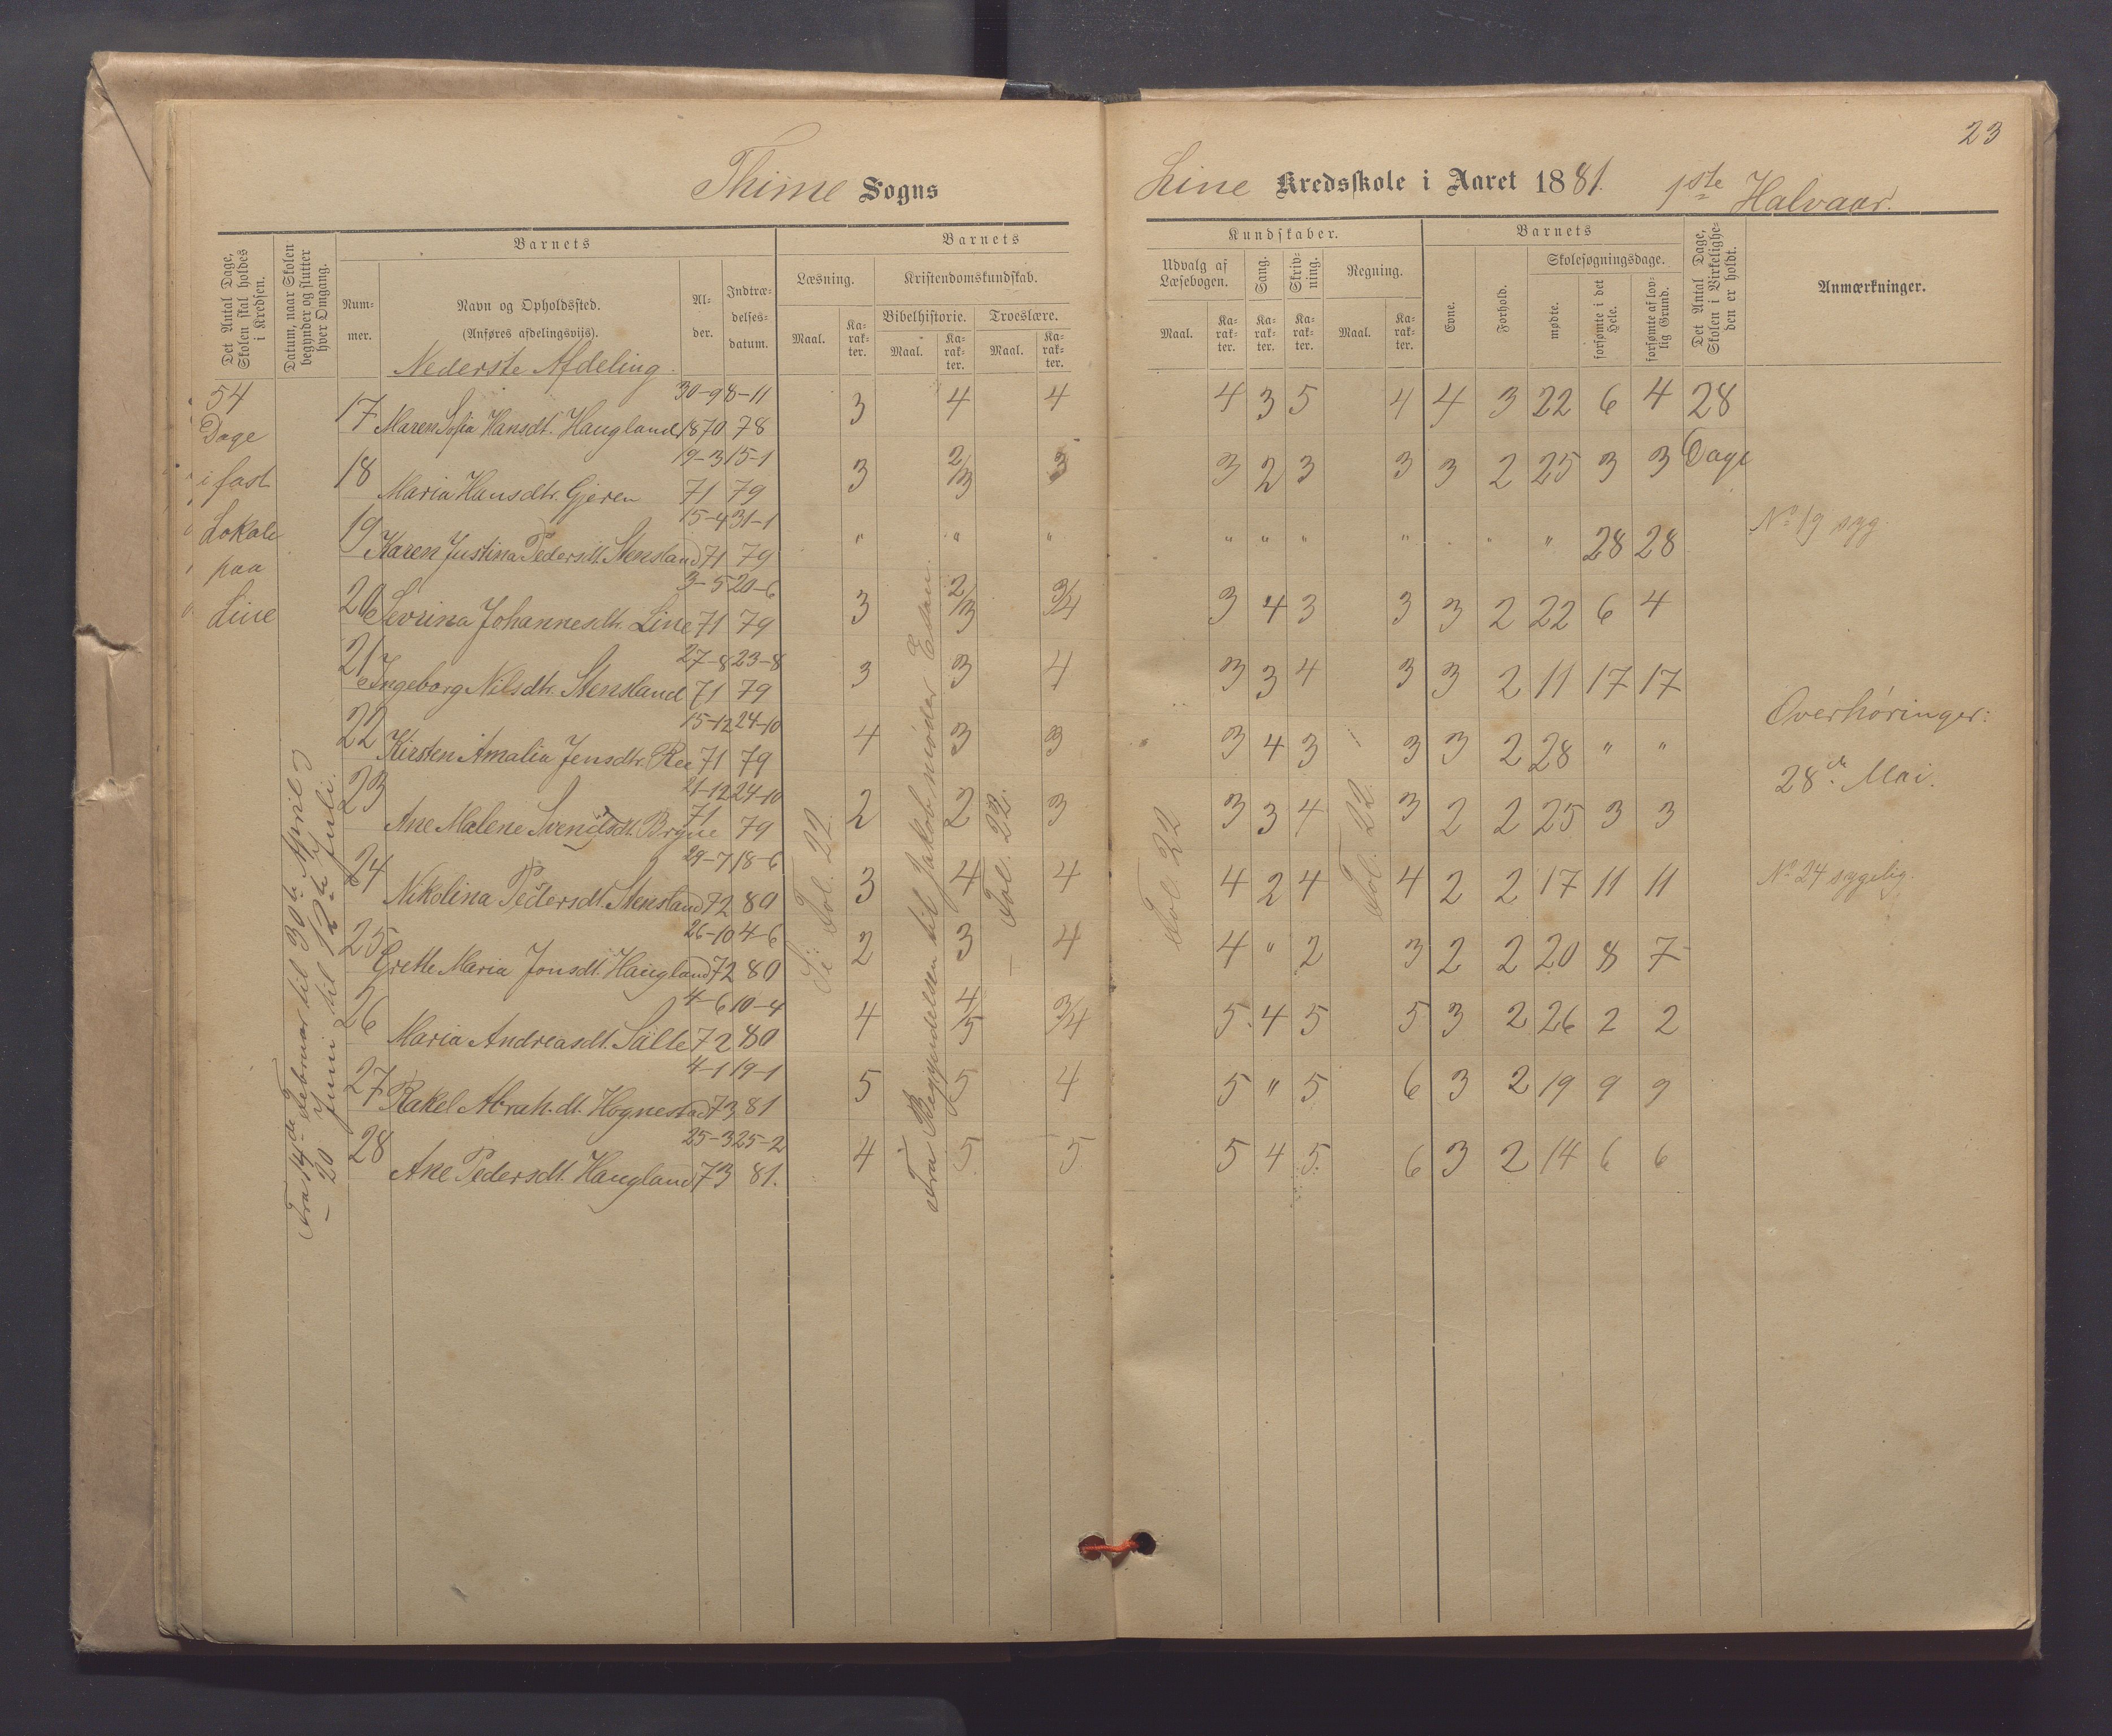 23
Thime Sogns
Line Kredsskole i Aaret 1881. 1ste Halvaar.
Det Antal Dage, Skolen skal holdes i Kredsen.
Datum, naar Skolen begynder og slutter hver Omgang.
Barnets
Num-mer.
Navn og Opholdssted.
(Anføres afdelingsviis).
Al-der.
Indtræ-delses-datum.
Barnets
Læsning.
Maal.
Ka-rak-ter.
Kristendomskundskab.
Bibelhistorie.
Maal.
Ka-rak-ter.
Troeslære.
Maal.
Ka-rak-ter.
Kundskaber.
Udvalg af Læsebogen.
Maal.
Ka-rak-ter.
Sang.
Ka-rak-ter.
Skriv-ning.
Ka-rak-ter.
Regning.
Maal.
Ka-rak-ter.
Barnets
Evne.
Forhold.
Skolesøgningsdage.
mødte.
forsømte i det Hele.
forsømte af lov-lig Grund.
Det Antal Dage, Skolen i Virkelighe-den er holdt.
Anmærkninger.
Nederste Afdeling.
54
Dage
i fast
Lokale
paa
Line
Fra 14de Februar til 30te April og
– 20 Juni til 12te Juli.
17 Maren Sofia Hansdt. Haugland 30-9 1870 8-11 78 3 4 4 4 3 5 4 4 3 22 6 4 28 Dage
18 Maria Hansdtr. Gjeren 19-3 71 15-1 79 3 2/3 3 3 2 3 3 3 2 25 3 3
19 Karen Justina Pedersdt. Stensland 15-4 71 31-1 79 " " " " " " " " " " 28 28 No 19 syg.
20 Sevrina Johannesdtr. Line 3-5 71 20-6 79 3 2/3 3/4 3 4 3 3 3 2 22 6 4
21 Ingeborg Nilsdtr. Stensland 27-8 71 23-8 79 3 3 4 3 3 4 3 3 2 11 17 17
22 Kirsten Amalia Jensdtr. Ree 15-12 71 24-10 79 4 3 3 " 3 4 3 3 3 2 28 " "
Overhøringer:
28de Mai.
23 Ane Malene Svendsdt. Bryne 21-12 71 24-10 79 2 2 3 3 3 4 3 2 2 25 3 3
24 Nikolina Pedersdt. Stensland 29-7 72 18-6 80 3 4 4 4 2 4 4 2 2 17 11 11 No 24 sygelig.
25 Grethe Maria Jonsdt. Haugland 26-10 72 4-6 80 2 3 4 4 " 2 3 2 2 20 8 7
26 Maria Andreasdt. Sälte 4-6 72 10-4 80 4 4/5 3/4 5. 4 5 5 3 2 26 2 2
27 Rakel Abrah.dt. Hognestad 4-1 73 19-1 81 5 5 4 5 " 5 6 3 2 19 9 9
28 Ane Pedersdt. Haugland 25-3 73 25-2 81. 4 5 5 5 4 5. 6 3 2 14 6 6
Se Fol. 22.
Fra Begyndelsen til Jakob møder Esau.
Fol. 22.
Fol. 22
Fol. 22.